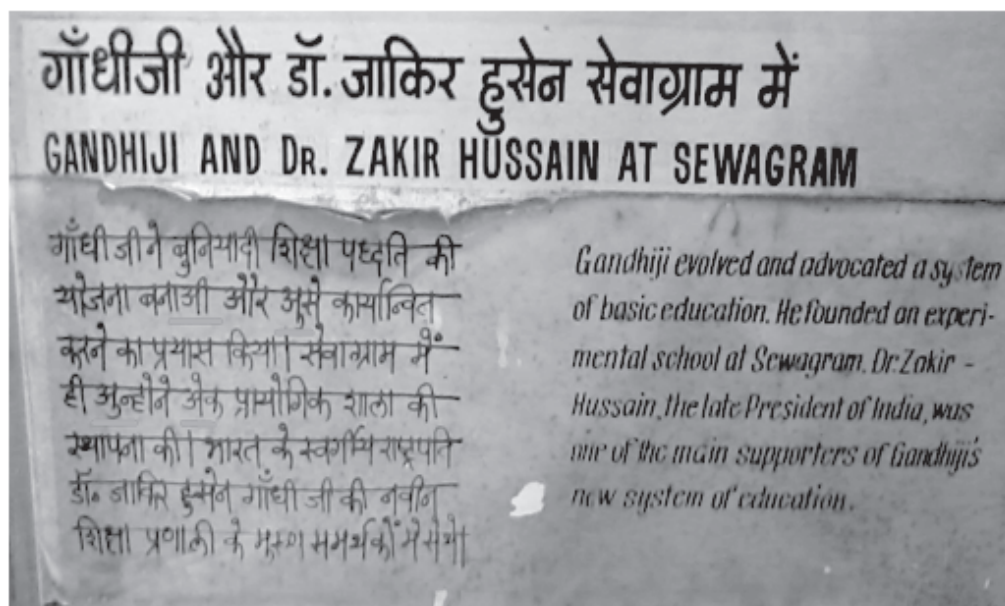 गाँधीजी और डॉ. जाकिर हुसेन सेवाग्राम में
GANDHIJI AND DR. ZAKIR HUSSAIN AT SEWAGRAM
गाँधीजीने बुनियादी शिक्षा पध्दति की
योजना बनाअी और अुसे कार्यान्वित
करने का प्रयास किया। सेवाग्राम में
ही अुन्होने अेक प्रायोगिक शाला की
स्थापना की। भारत के स्वर्गीय राष्ट्रपति
डॉ. जाकिर हुसेन गाँधी जी की नवीन
शिक्षा प्रणाली के मुख्य समर्थकों मे से थे।
Gandhiji evolved and advocated a system
of basic education. He founded an experi-
mental school at Sewagram. Dr. Zakir -
Hussain, the late President of India, was
one of the main supporters of Gandhiji's
new system of education.